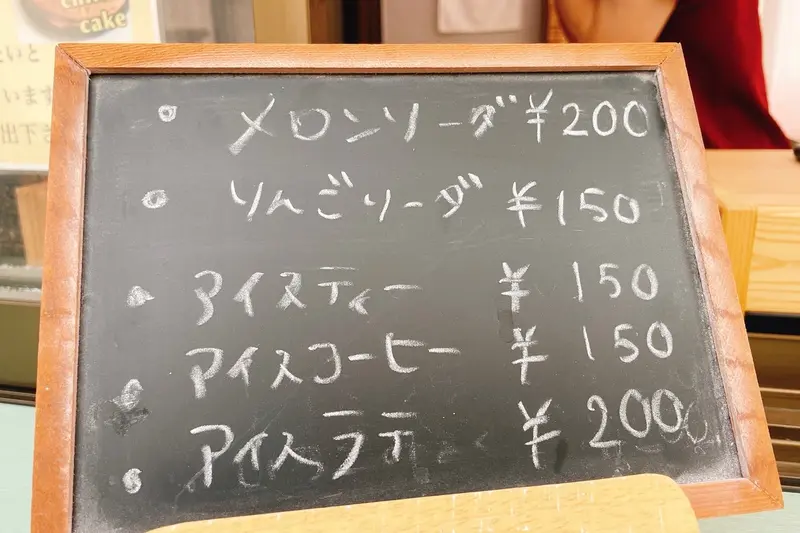 chi
cake
たいと
います
出下さ
メロンソーダ ¥200
りんごソーダ ¥150
アイスティー ¥150
アイスコーヒー ¥150
アイスラテ ¥200